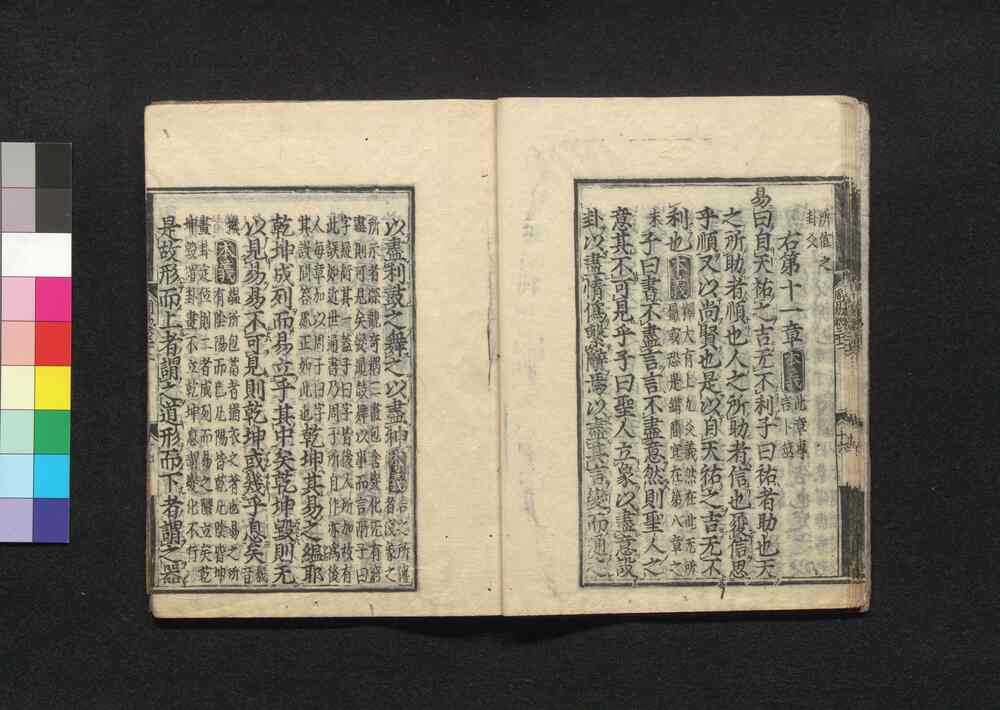 所值之
卦爻
右第十一章 本義 此章專
言卜筮
易曰自天祐之吉无不利子曰祐者助也天
之所助者順也人之所助者信也履信思
乎順又以尚賢也是以自天祐之吉无不
利也 本義 釋大有上九爻義然在此无所
屬或恐是錯簡宜在第八章之
末 子曰書不盡言言不盡意然則聖人之
意其不可見乎子曰聖人立象以盡意設
卦以盡情僞繫辭焉以盡其言變而通之
以盡利鼓之舞之以盡神 本義 言之所傳
者淺象之
所示者深觀奇耦二畫包含變化无有窮
盡則可見矣變通鼓舞以事而言兩子曰
字疑衍其一蓋子曰字皆後人所加故有
此誤如近世通書乃周子所自作亦爲後
人每章加以周子曰字
其設問答處正如此也 乾坤其易之縕耶
乾坤成列而易立乎其中矣乾坤毀則无
以見易易不可見則乾坤或幾乎息矣 幾音
機 本義 縕所包蓄者猶衣之著也易之所
有陰陽而已凡陽皆乾凡陰皆坤
畫卦定位則二者成列而易之體立矣乾
坤毀謂卦畫不立乾坤息謂變化不行
是故形而上者謂之道形而下者謂之器